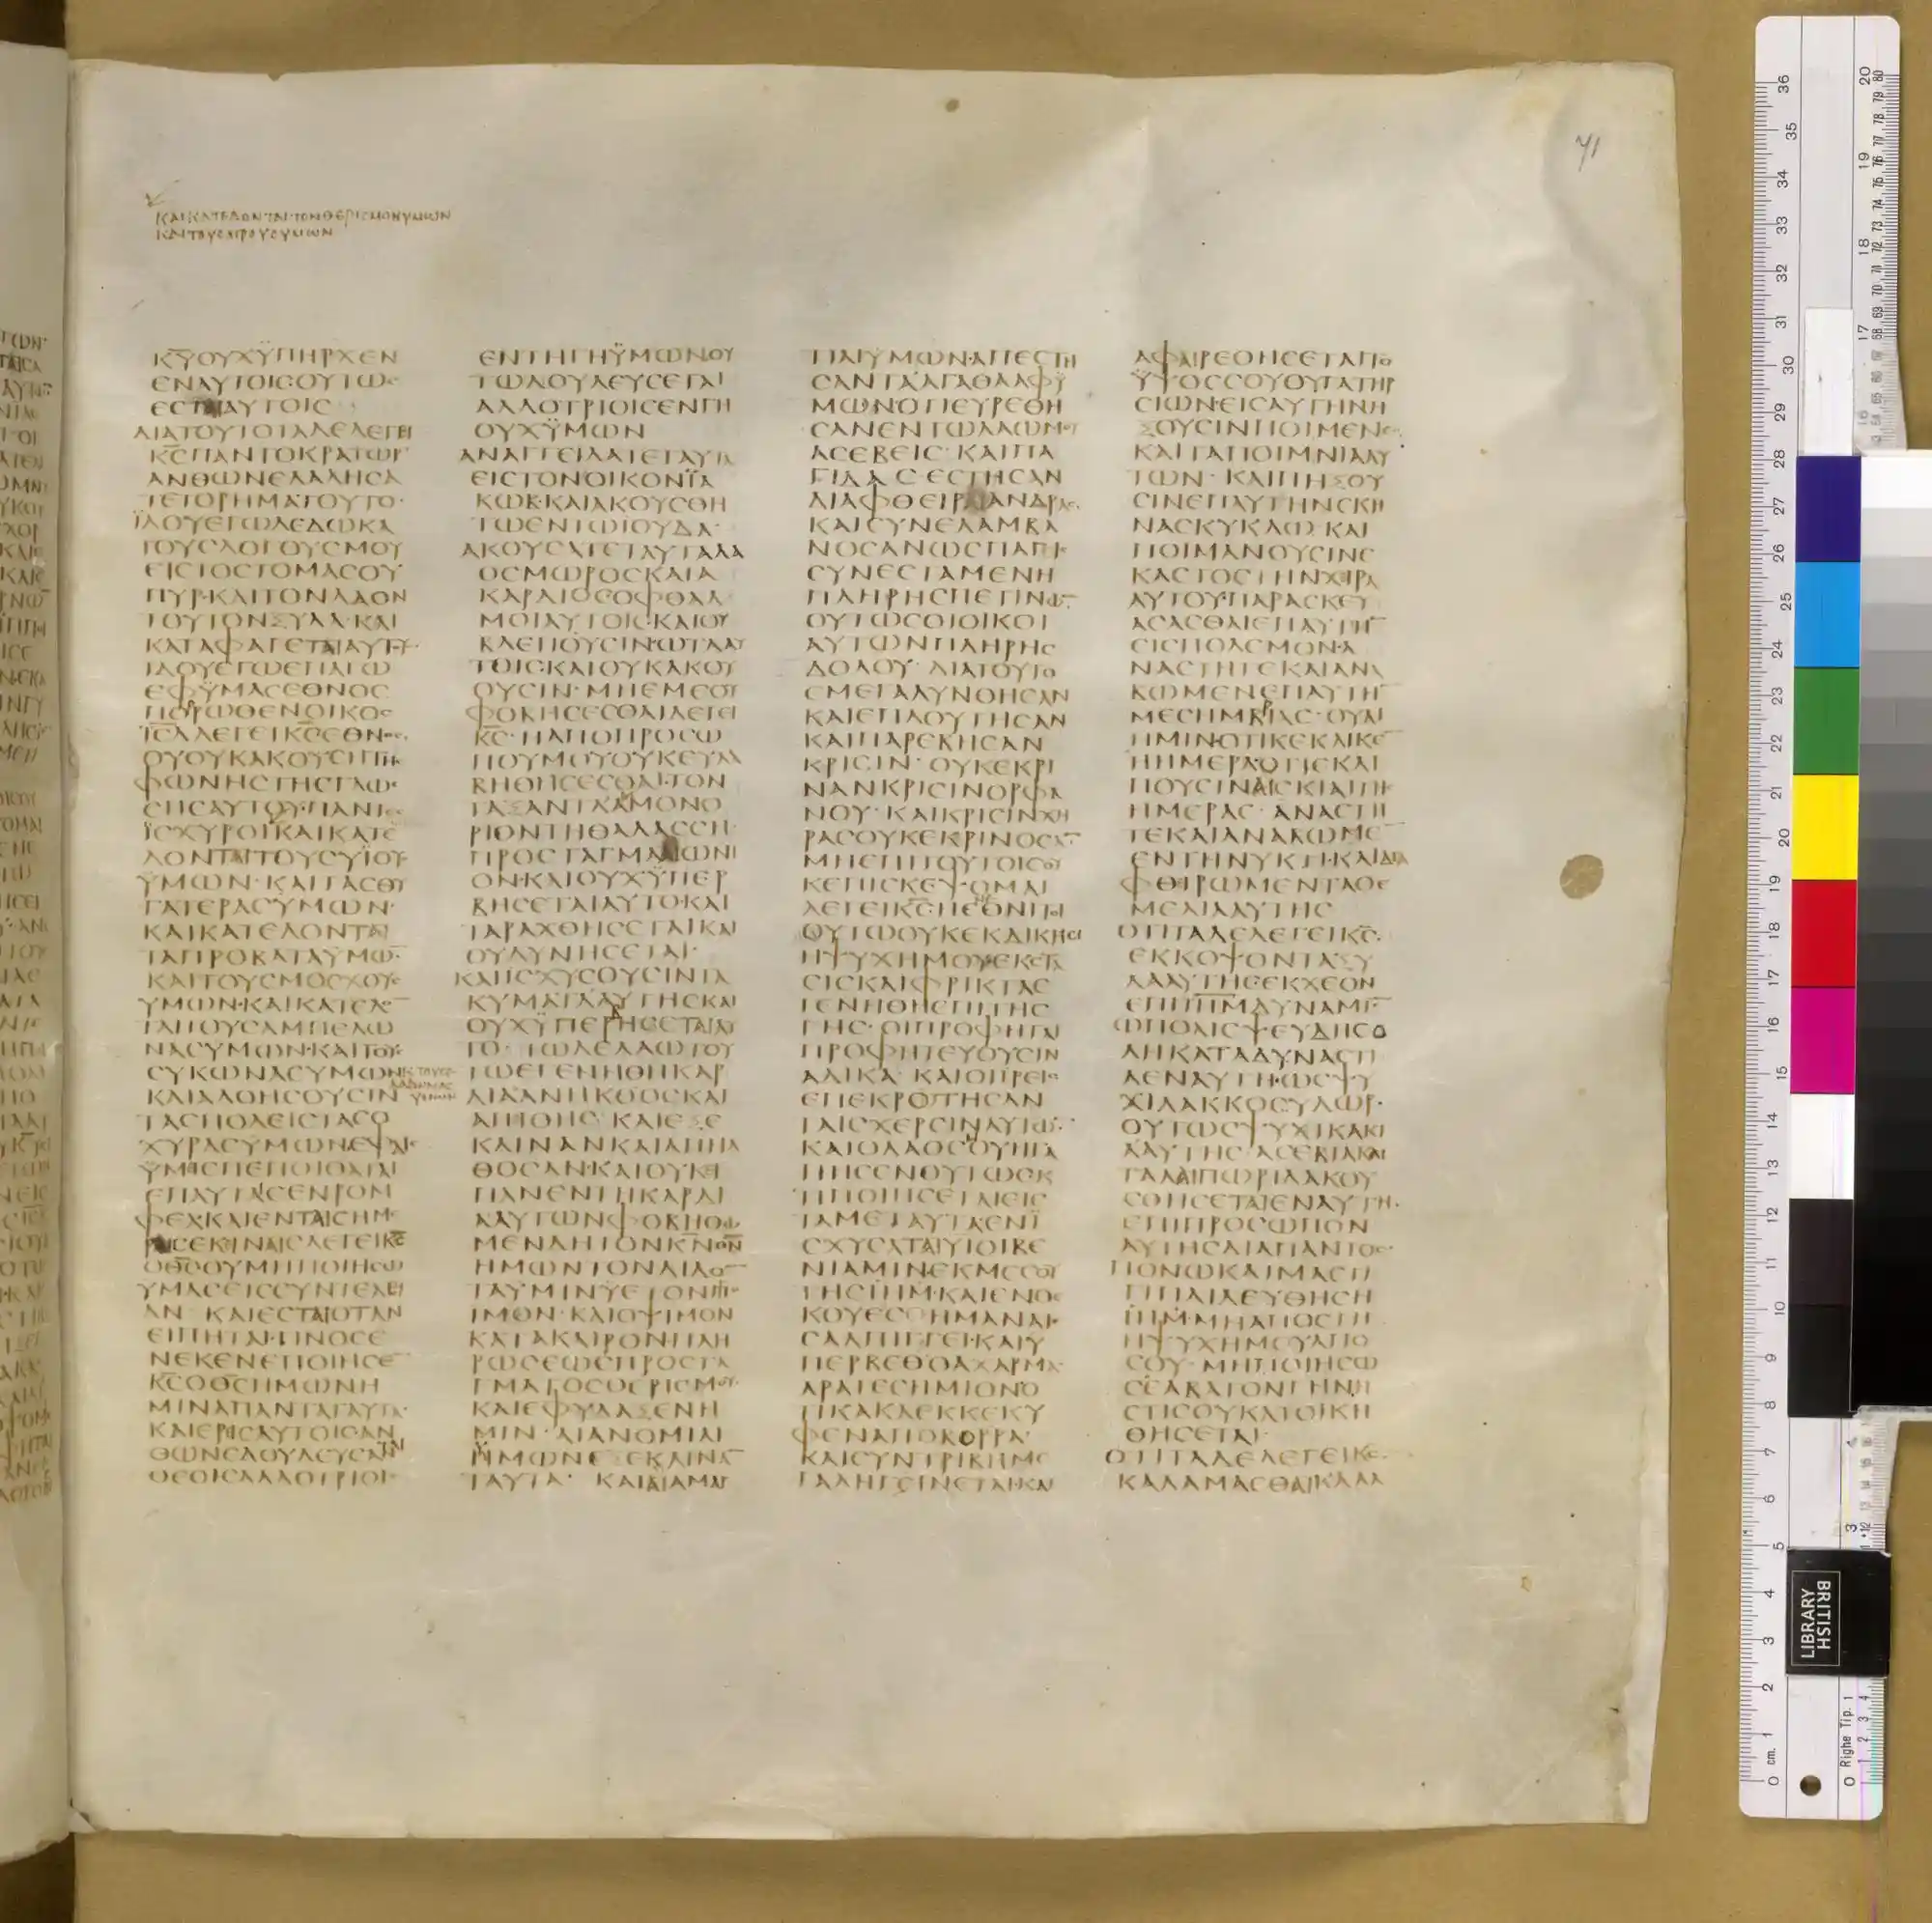 ΚΑΙΚΑΤΕΔΟΝΤΑΙ·ΤΟΝΘΕΡΙϹΜΟΝΥΜΩΝ
ΚΑΙΤΟΥϹΑΡΤΟΥϹΥΜΩΝ
71
Κ̅Υ̅ΟΥΧΫΠΗΡΧΕΝ
ΕΝΑΥΤΟΙϹΟΥΤΩϹ
ΕϹΤΑΙΑΥΤΟΙϹ
ΔΙΑΤΟΥΤΟΤΑΔΕΛΕΓΕΙ
Κ̅Ϲ̅ΠΑΝΤΟΚΡΑΤΩΡ
ΑΝΘΩΝΕΛΑΛΗϹΑ
ΤΕΤΟΡΗΜΑΤΟΥΤΟ·
ΪΔΟΥΕΓΩΔΕΔΩΚΑ
ΤΟΥϹΛΟΓΟΥϹΜΟΥ
ΕΙϹΤΟϹΤΟΜΑϹΟΥ
ΠΥΡ·ΚΑΙΤΟΝΛΑΟΝ
ΤΟΥΤΟΝΞΥΛΑ·ΚΑΙ
ΚΑΤΑΦΑΓΕΤΑΙΑΥΤΥ
ΙΔΟΥΕΓΩΕΠΑΓΩ
ΕΦΫΜΑϹΕΘΝΟϹ
ΠΟΡΩΘΕΝΟΙΚΟϹ
Ι̅Ϲ̅Λ̅ΛΕΓΕΙΚ̅Ϲ̅ΕΘΝΟϹ
ΟΥΟΥΚΑΚΟΥϹΙΤΗϹ
ΦΩΝΗϹΤΗϹΓΛΩϹ
ϹΗϹΑΥΤΟΥ·ΠΑΝΤΕϹ
ΪϹΧΥΡΟΙΚΑΙΚΑΤΕ
ΔΟΝΤΑΙΤΟΥϹΥΪΟΥϹ
ΫΜΩΝ·ΚΑΙΤΑϹΘΥ
ΓΑΤΕΡΑϹΥΜΩΝ·
ΚΑΙΚΑΤΕΔΟΝΤΑΙ
ΤΑΠΡΟΒΑΤΑΫΜΩ̅·
ΚΑΙΤΟΥϹΜΟϹΧΟΥϹ
ΥΜΩΝ·ΚΑΙΚΑΤΕΔΟ̅
ΤΑΙΤΟΥϹΑΜΠΕΛΩ
ΝΑϹΥΜΩΝ·ΚΑΙΤΟΥϹ
ϹΥΚΩΝΑϹΥΜΩΝ
ΚΑΙΑΛΟΗϹΟΥϹΙΝ
ΤΑϹΠΟΛΕΙϹΤΑϹΟ
ΧΥΡΑϹΥΜΩΝΕΦΑΙϹ
ΫΜΙϹΠΕΠΟΙΘΑΤΑΙ
ΕΠΑΥΤΑΙϹΕΝΡΟΜ
ΦΕΑ·ΚΑΙΕΝΤΑΙϹΗΜΕ
ΡΑΙϹΕΚΙΝΑΙϹΛΕΓΕΙΚ̅Ϲ̅
ΟΘ̅Ϲ̅ΟΥΜΗΠΟΙΗϹΩ
ΥΜΑϹΕΙϹϹΥΝΤΕΛΕΙ
ΑΝ ΚΑΙΕϹΤΑΙΟΤΑΝ
ΕΙΠΗΤΑΙ·ΤΙΝΟϹΕ
ΝΕΚΕΝΕΠΟΙΗϹΕ̅
Κ̅Ϲ̅ΟΘ̅Ϲ̅ΗΜΩΝΗ
ΜΙΝΑΠΑΝΤΑΤΑΥΤΑ·
ΚΑΙΕΡΙϹΑΥΤΟΙϹΑΝ
ΘΩΝΕΔΟΥΛΕΥϹΑΤΑΙ
ΘΕΟΙϹΑΛΛΟΤΡΙΟΙϹ
ΕΝΤΗΓΗΫΜΩΝΟΥ
ΤΩΔΟΥΛΕΥϹΕΤΑΙ
ΑΛΛΟΤΡΙΟΙϹΕΝΓΗ
ΟΥΧΫΜΩΝ
ΑΝΑΓΓΕΙΛΑΤΕΤΑΥΤΑ
ΕΙϹΤΟΝΟΙΚΟΝΪΑ
ΚΩΒ·ΚΑΙΑΚΟΥϹΘΗ
ΤΩΕΝΤΩΙΟΥΔΑ·
ΑΚΟΥϹΑΤΕΤΑΥΤΑΛΑ
ΟϹΜΩΡΟϹΚΑΙΑ
ΚΑΡΔΙΟϹΟΦΘΑΛ
ΜΟΙΑΥΤΟΙϹ·ΚΑΙΟΥ
ΒΛΕΠΟΥϹΙΝ·ΩΤΑΑΥ
ΤΟΙϹ·ΚΑΙΟΥΚΑΚΟΥ
ΟΥϹΙΝ·ΜΗΕΜΕΟΥ
ΦΟΒΗϹΕϹΘΑΙΛΕΓΕΙ
Κ̅Ϲ̅·ΗΑΠΟΠΡΟϹΩ
ΠΟΥΜΟΥΟΥΚΕΥΛΑ
ΒΗΘΗϹΕϹΘΑΙ·ΤΟΝ
ΤΑΞΑΝΤΑΑΜΜΟΝΟ
ΡΙΟΝΤΗΘΑΛΑϹϹΗ
ΠΡΟϹΤΑΓΜΑΑΙΩΝΙ
ΟΝ·ΚΑΙΟΥΧΫΠΕΡ
ΒΗϹΕΤΑΙΑΥΤΟ·ΚΑΙ
ΤΑΡΑΧΘΗϹΕΤΑΙΚΑΙ
ΟΥΔΥΝΗϹΕΤΑΙ·
ΚΑΙΙϹΧΥϹΟΥϹΙΝΤΑ
ΚΥΜΑΤΑΑΥΤΗϹΚΑΙ
ΟΥΧΫΠΕΡΒΗϹΕΤΑΙΑΥ
ΤΟ· ΤΩΔΕΛΑΩΤΟΥ
ΤΩΕΓΕΝΗΘΗΚΑΡ
ΔΙΑΑΝΗΚΟΟϹΚΑΙ
ΑΠΙΘΗϹ· ΚΑΙΕΞΕ
ΚΛΙΝΑΝΚΑΙΑΠΗΛ
ΘΟϹΑΝ·ΚΑΙΟΥΚΕΙ
ΠΑΝΕΝΤΗΚΑΡΔΙ
ΑΑΥΤΩΝΦΟΒΗΘΩ
ΜΕΝΔΗΤΟΝΚ̅Ν̅ΘΝ̅
ΗΜΩΝΤΟΝΔΙΔΟ̅
ΤΑΥΜΙΝΥΕΤΟΝΠΡΙ
ΙΜΟΝ·ΚΑΙΟΨΙΜΟΝ
ΚΑΤΑΚΑΙΡΟΝΠΛΗ
ΡΩϹΕΩϹΠΡΟϹΤΑ
ΓΜΑΤΟϹΘΕΡΙϹΜΟΥ·
ΚΑΙΕΦΥΛΑΞΕΝΗ
ΜΙΝ·ΑΙΑΝΟΜΙΑΙ
ΫΜΩΝΕΞΕΚΛΙΝΑ̅
ΤΑΥΤΑ· ΚΑΙΑΙΑΜΑΡ
ΤΙΑΙΫΜΩΝ·ΑΠΕϹΤΗ
ϹΑΝΤΑΑΓΑΘΑΑΦΫ
ΜΩΝΟΤΙΕΥΡΕΘΗ
ϹΑΝΕΝΤΩΛΑΩΜΟΥ
ΑϹΕΒΕΙϹ·ΚΑΙΠΑ
ΓΙΔΑϹΕϹΤΗϹΑΝ
ΔΙΑΦΘΕΙΡΑΙΑΝΔΡΑϹ·
ΚΑΙϹΥΝΕΛΑΜΒΑ
ΝΟϹΑΝΩϹΠΑΓΙϹ
ϹΥΝΕϹΤΑΜΕΝΗ
ΠΛΗΡΗϹΠΕΤΙΝΩ̅·
ΟΥΤΩϹΟΙΟΙΚΟΙ
ΑΥΤΩΝΠΛΗΡΗϹ
ΔΟΛΟΥ·ΔΙΑΤΟΥΤΟ
ΕΜΕΓΑΛΥΝΘΗϹΑΝ
ΚΑΙΕΠΛΟΥΤΗϹΑΝ
ΚΑΙΠΑΡΕΒΗϹΑΝ
ΚΡΙϹΙΝ·ΟΥΚΕΚΡΙ
ΝΑΝΚΡΙϹΙΝΟΡΦΑ
ΝΟΥ·ΚΑΙΚΡΙϹΙΝΧΗ
ΡΑϹΟΥΚΕΚΡΙΝΟϹΑ̅
ΜΗΕΠΙΤΟΥΤΟΙϹΟΥ
ΚΕΠΙϹΚΕΨΟΜΑΙ
ΛΕΓΕΙΚ̅Ϲ̅·ΗΕΘΝΙΤΩ
ΘΥΤΩΟΥΚΕΚΔΙΚΗϹΕΙ
ΗΨΥΧΗΜΟΥΕΚϹΤΑ
ϹΙϹΚΑΙΦΡΙΚΤΑϹ
ΓΕΝΗΘΗΕΠΙΤΗϹ
ΓΗϹ·ΟΙΠΡΟΦΗΤΑΙ
ΠΡΟΦΗΤΕΥΟΥϹΙΝ
ΑΔΙΚΑ·ΚΑΙΟΙΙΕΡΕΙϹ
ΕΠΕΚΡΟΤΗϹΑΝ
ΤΑΙϹΧΕΡϹΙΝΑΥΤΩ̅·
ΚΑΙΟΛΑΟϹΜΟΥΗΓΑ
ΠΗϹΕΝΟΥΤΩϹΚ
ΤΙΠΟΙΗϹΕΤΑΙΕΙϹ
ΤΑΜΕΤΑΥΤΑΕΝΪ
ϹΧΥϹΑΤΑΙΥΙΟΙΒΕ
ΝΙΑΜΙΝΕΚΜΕϹΟΥ
ΤΗϹΙ̅Η̅Μ̅·ΚΑΙΕΝΘΕ
ΚΟΥΕϹΗΜΑΝΑΙ·
ϹΑΛΠΙΓΓΕΙ·ΚΑΙΥ
ΠΕΡΒΕΘΘΑΧΑΡΜΑ·
ΑΡΑΤΕϹΗΜΙΟΝΟ
ΤΙΚΑΚΑΕΚΚΕΚΥ
ΦΕΝΑΠΟΒΟΡΡΑ·
ΚΑΙϹΥΝΤΡΙΒΗΜΕ
ΓΑΛΗΓΕΙΝΕΤΑΙ·ΚΑΙ
ΑΦΑΙΡΕΘΗϹΕΤΑΙΤΟ
ΫΨΟϹϹΟΥΘΥΓΑΤΗΡ
ϹΙΩΝ·ΕΙϹΑΥΤΗΝΗ
ΞΟΥϹΙΝΠΟΙΜΕΝΕϹ·
ΚΑΙΤΑΠΟΙΜΝΙΑΑΥ
ΤΩΝ·ΚΑΙΠΗΞΟΥ
ϹΙΝΕΠΑΥΤΗΝϹΚΗ
ΝΑϹΚΥΚΛΩ·ΚΑΙ
ΠΟΙΜΑΝΟΥϹΙΝΕ
ΚΑϹΤΟϹΤΗΝΧΙΡΑ
ΑΥΤΟΥ·ΠΑΡΑϹΚΕΥ
ΑϹΑϹΘΑΙΕΠΑΥΤΗ̅
ΕΙϹΠΟΛΕΜΟΝ·Α
ΝΑϹΤΗΤΕΚΑΙΑΝΑ
ΒΩΜΕΝΕΠΑΥΤΗ̅
ΜΕϹΗΜΒΡΙΑϹ·ΟΥΑΙ
ΗΜΙΝ·ΟΤΙΚΕΚΛΙΚΕ̅
ΗΗΜΕΡΑ·ΟΤΙΕΚΛΙ
ΠΟΥϹΙΝΑΙϹΚΙΑΙΤΗϹ
ΗΜΕΡΑϹ·ΑΝΑϹΤΗ
ΤΕΚΑΙΑΝΑΒΩΜΕ̅
ΕΝΤΗΝΥΚΤΙ·ΚΑΙΔΙΑ
ΦΘΙΡΩΜΕΝΤΑΘΕ
ΜΕΛΙΑΑΥΤΗϹ
ΟΤΙΤΑΔΕΛΕΓΕΙΚ̅Ϲ̅·
ΕΚΚΟΨΟΝΤΑΞΥ
ΛΑΑΥΤΗϹΕΚΧΕΟΝ
ΕΠΙΙ̅Η̅Μ̅ΔΥΝΑΜΙ̅
ΩΠΟΛΙϹΨΕΥΔΗϹΟ
ΛΗΚΑΤΑΔΥΝΑϹΤΙ
ΑΕΝΑΥΤΗ·ΩϹΨΥ
ΧΙΛΑΚΚΟϹΥΔΩΡ·
ΟΥΤΩϹΨΥΧΙΚΑΚΙ
ΑΑΥΤΗϹ·ΑϹΕΒΙΑΚΑΙ
ΤΑΛΑΙΠΩΡΙΑΑΚΟΥ
ϹΘΗϹΕΤΑΙΕΝΑΥΤΗ·
ΕΠΙΠΡΟϹΩΠΟΝ
ΑΥΤΗϹΔΙΑΠΑΝΤΟϹ·
ΠΟΝΩΚΑΙΜΑϹΤΙ
ΓΙΠΑΙΔΕΥΘΗϹΗ
Ι̅Η̅Μ̅·ΜΗΑΠΟϹΤΗ
ΗΨΥΧΗΜΟΥΑΠΟ
ϹΟΥ·ΜΗΠΟΙΗϹΩ
ϹΕΑΒΑΤΟΝΓΗΝΗ
ΤΙϹΟΥΚΑΤΟΙΚΗ
ΘΗϹΕΤΑΙ·
ΟΤΙΤΑΔΕΛΕΓΕΙΚ̅Ϲ̅
ΚΑΛΑΜΑϹΘΑΙΚΑΛΑ
BRITISH
LIBRARY